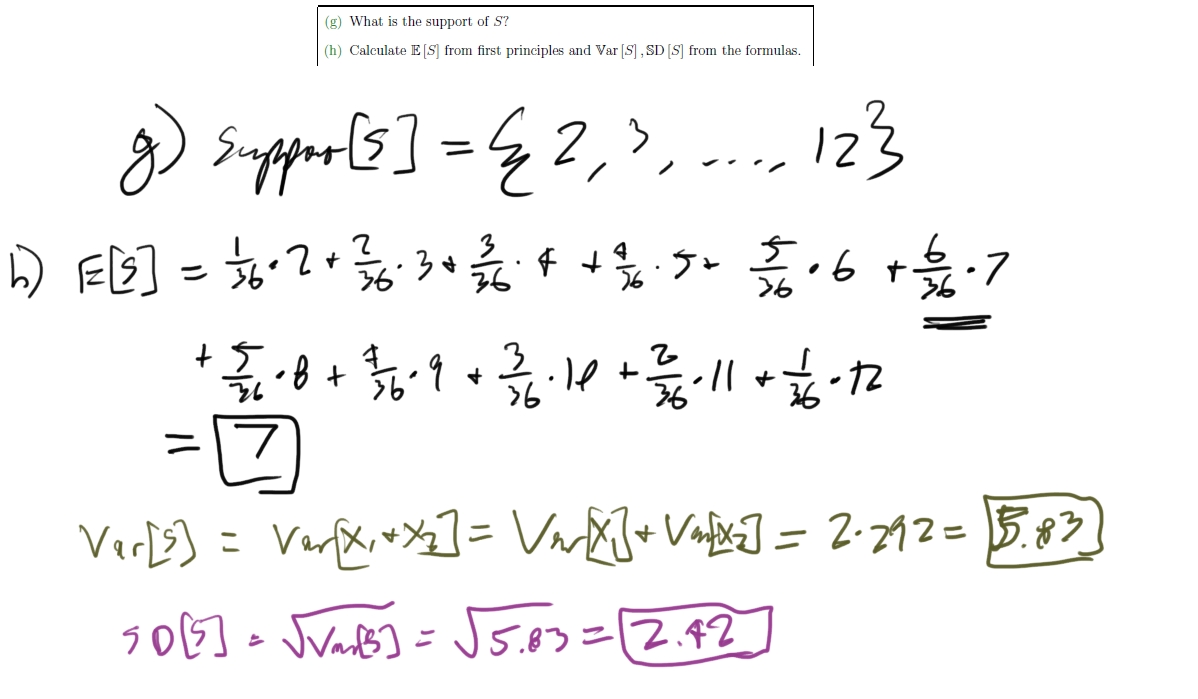 (g) What is the support of S?
(h) Calculate 𝔼[S] from first principles and 𝕍ar[S], 𝕊𝔻[S] from the formulas.
g) Suppor[S] = {2, 3, ...., 12}
h) E[S] = 1/36 · 2 + 2/36 · 3 + 3/36 · 4 + 4/36 · 5 + 5/36 · 6 + 6/36 · 7
+ 5/36 · 8 + 4/36 · 9 + 3/36 · 10 + 2/36 · 11 + 1/36 · 12
= 7
Var[S] = Var[X₁+X₂] = Var[X₁] + Var[X₂] = 2·292 = 5.83
SD[S] = √Var[S] = √5.83 = 2.42